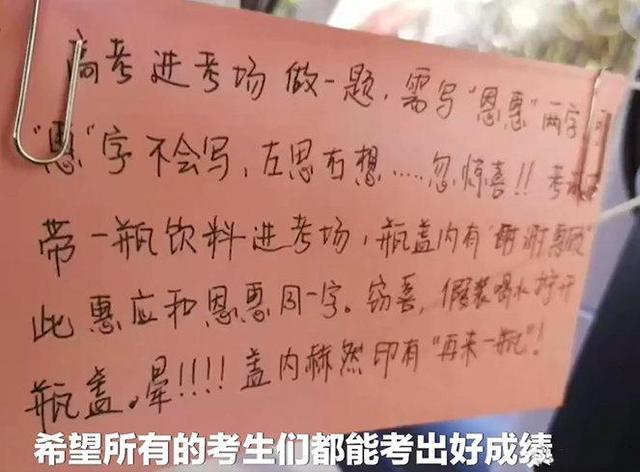 高考进考场做一题,需写"恩惠"两字,
"惠"字不会写,左思右想……忽惊喜!!考
带一瓶饮料进考场,瓶盖内有"谢谢惠顾"
此惠应和恩惠同一字。窃喜,假装喝水拧开
瓶盖。晕!!!!盖内赫然印有"再来一瓶"!
希望所有的考生们都能考出好成绩